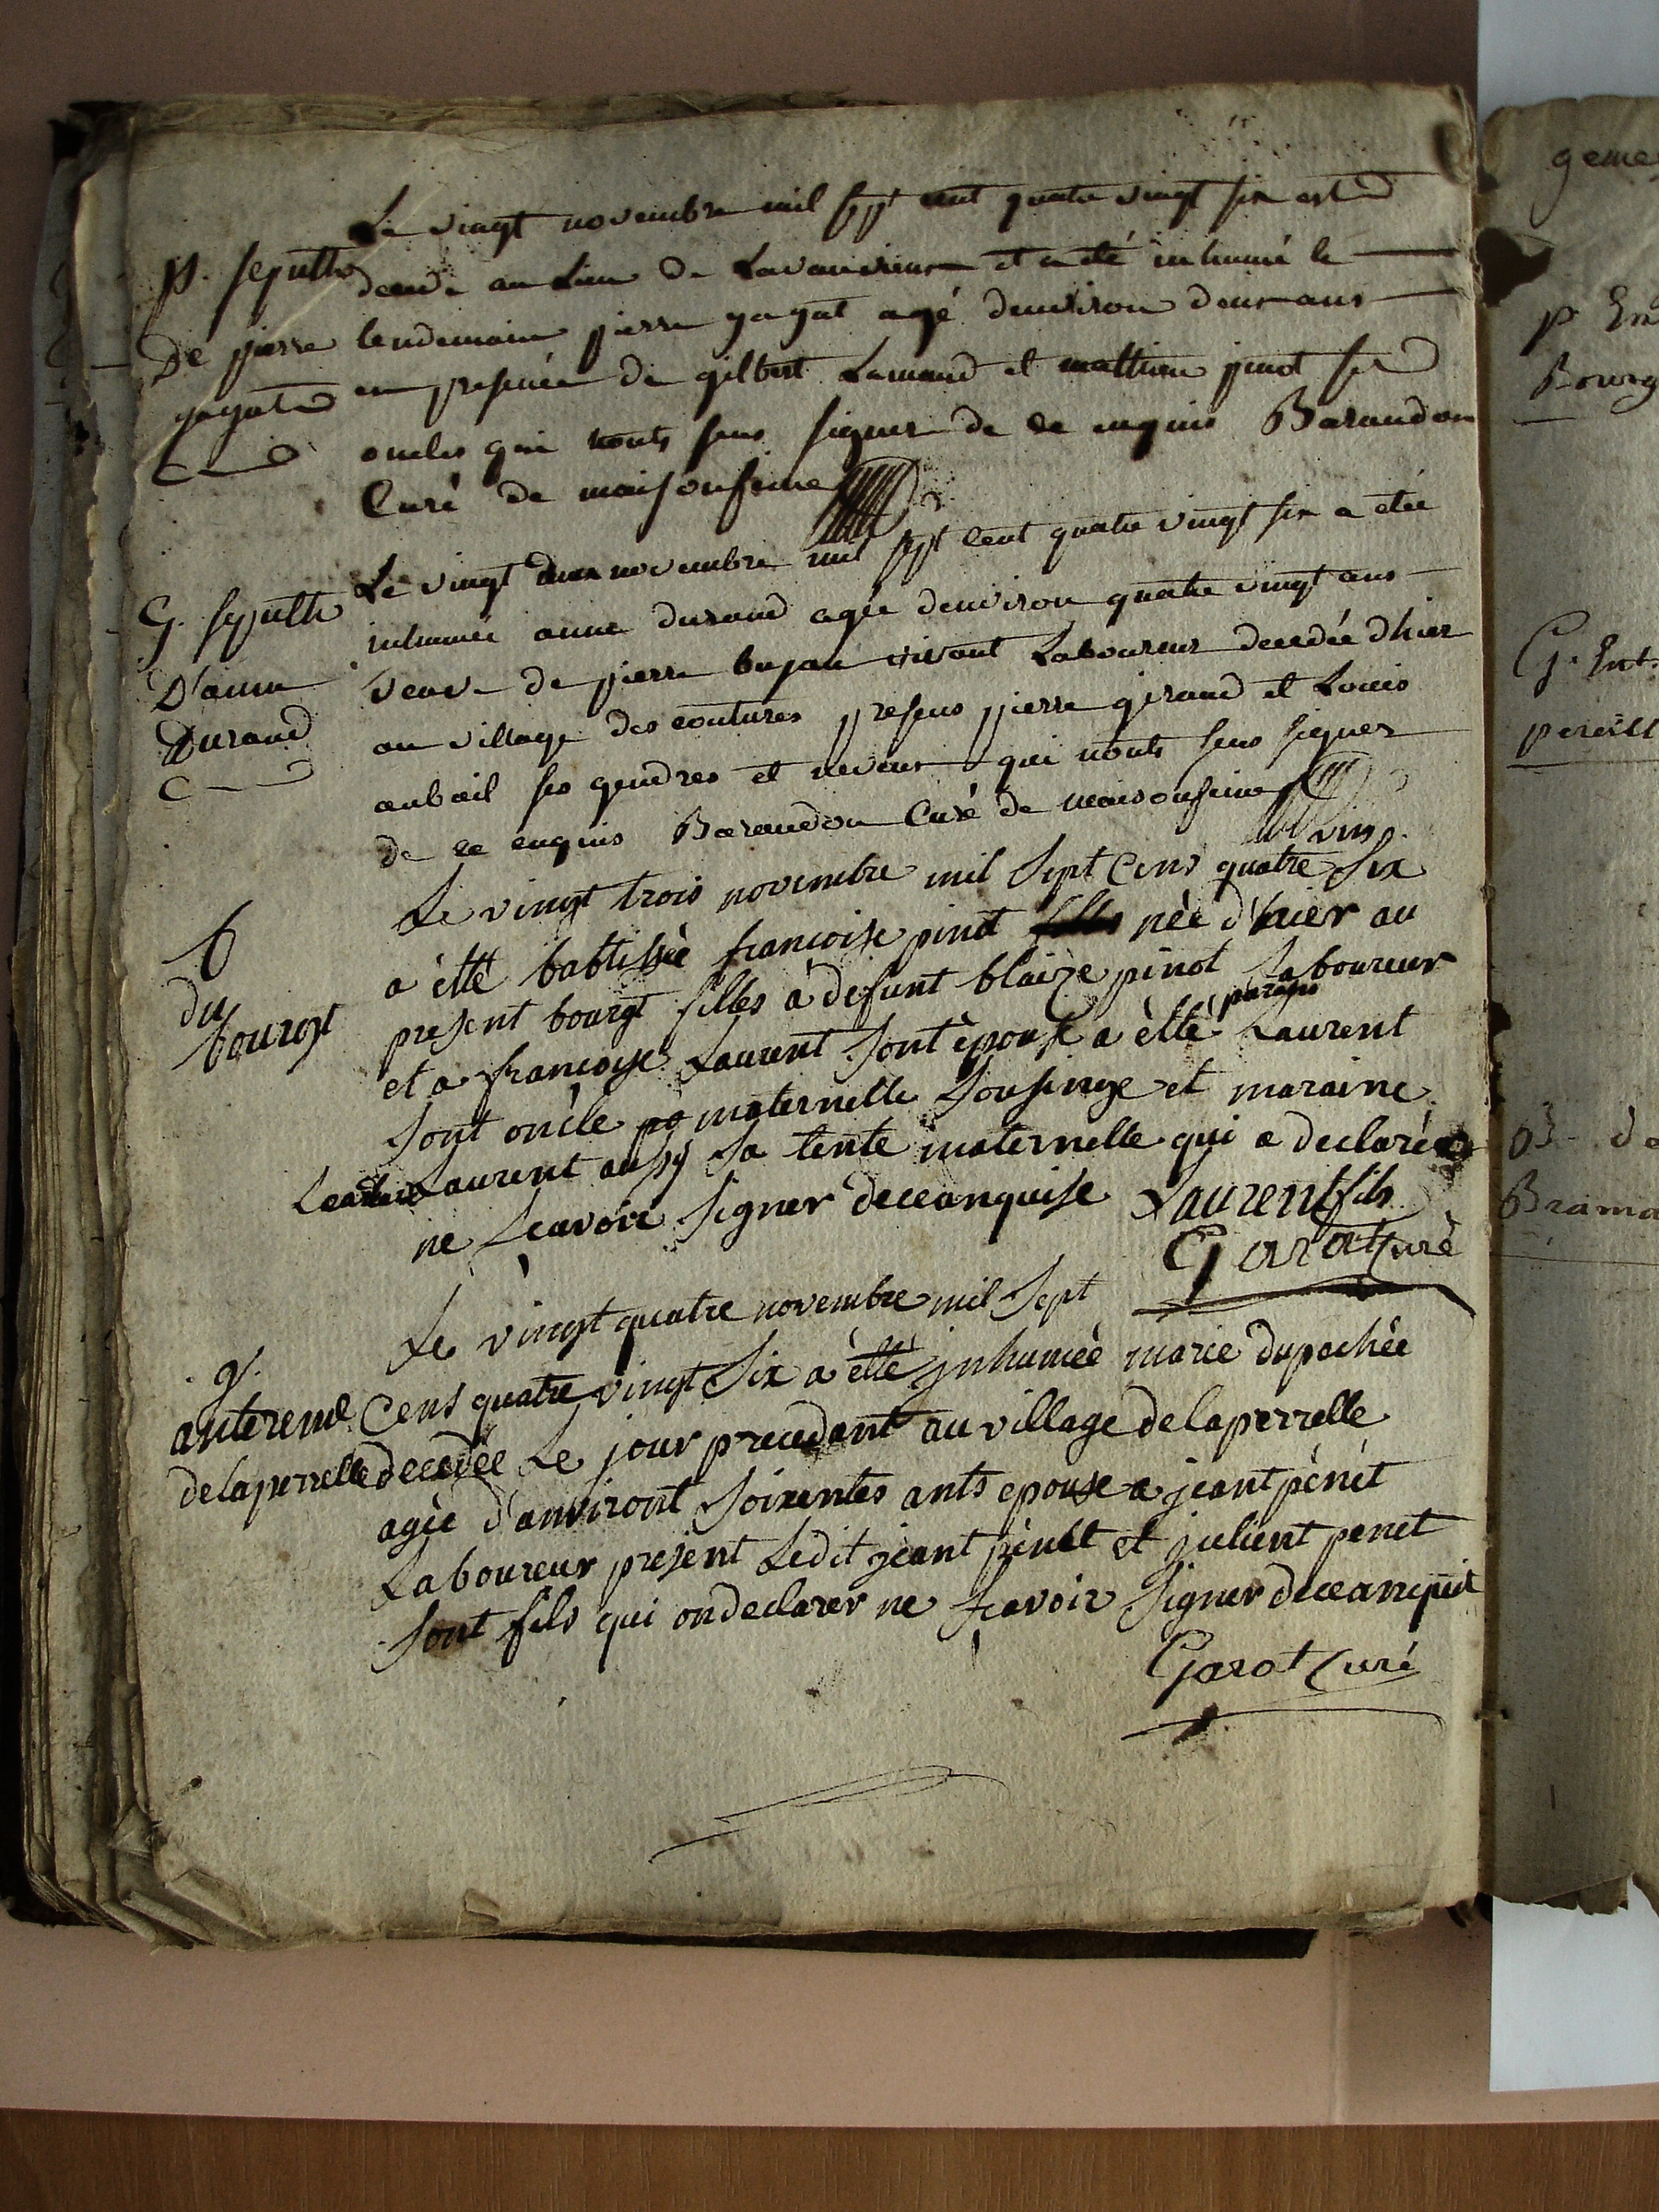 Le vingt novembre mil sept cent quatre vingt six est
p. sepultre
decedé au Lieu de et a eté inhumé le
De pierre
lendemain pierre gagat agé denviron deux ans
gagat
en presence de gilbert Lamaud et mathieu pinot ses
oncles qui nonts sceus signer de ce enquis Baraudon
Curé de maisonfeine
Le vingt deux novembre mil sept cent quatre vingt six a etée
G. sepultre
inhumée anne durand agée denviron quatre vingt ans
D'anne
veuve de pierre bujau vivant Laboureur decedée dhier
Durand
au village des coutures presens pierre giraud et Louis
aubail ses gendres et neveux qui nonts sceus signer
de ce enquis Baraudon Curé de maisonfeine
vins
Le vingt trois novembre mil Sept Cens quatre Six
b
a êtté babtissèe francoise pinot née d'hier au
du
present bourgt filles a defunt blaize pinot Laboureur
bourgt
parain
et a francoise Laurent Sont èpouse a êtté Laurent
Sont oncle maternelle Sousinge et maraine
Laurent aussy Sa tente maternelle qui a declarée
ne Scavoir Signer deceanquise Laurent fils
Garat Curè
Le vingt quatre novembre mil Sept
g.
anterement
Cens quatre vingt Six a êtté jnhumèè marie dupochée
delaperrelle
decedée Le jour precedant au village delaperrelle
agèe d'anviront Soixentes ants epouse a jeant pénèt
Laboureur present Ledit jeant pènèt et julient penet
Sont fils qui ondeclarer ne Scavoir Signer deceanquit
Garot Curé
geme
p En
Bourg
G. Ent.
pereill
B de
Brama